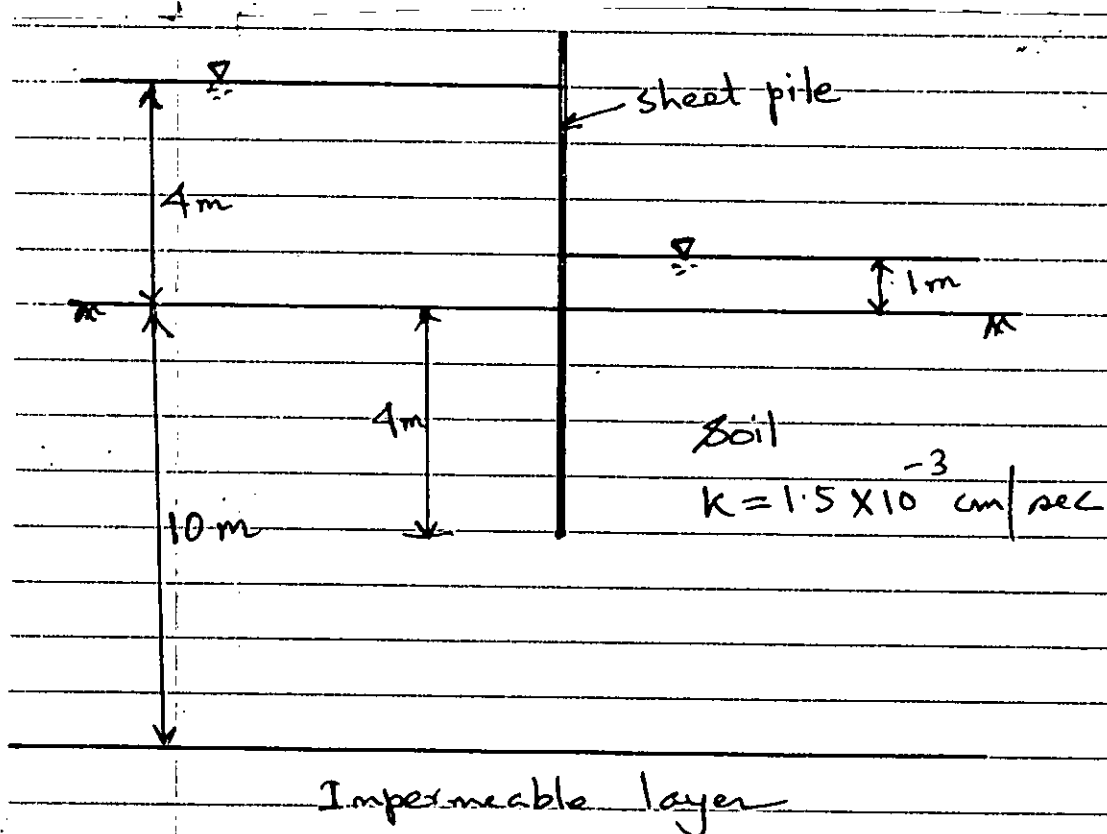 sheet pile
4m
1m
4m
Soil
k = 1.5 X 10⁻³ cm/sec
10m
Impermeable layer